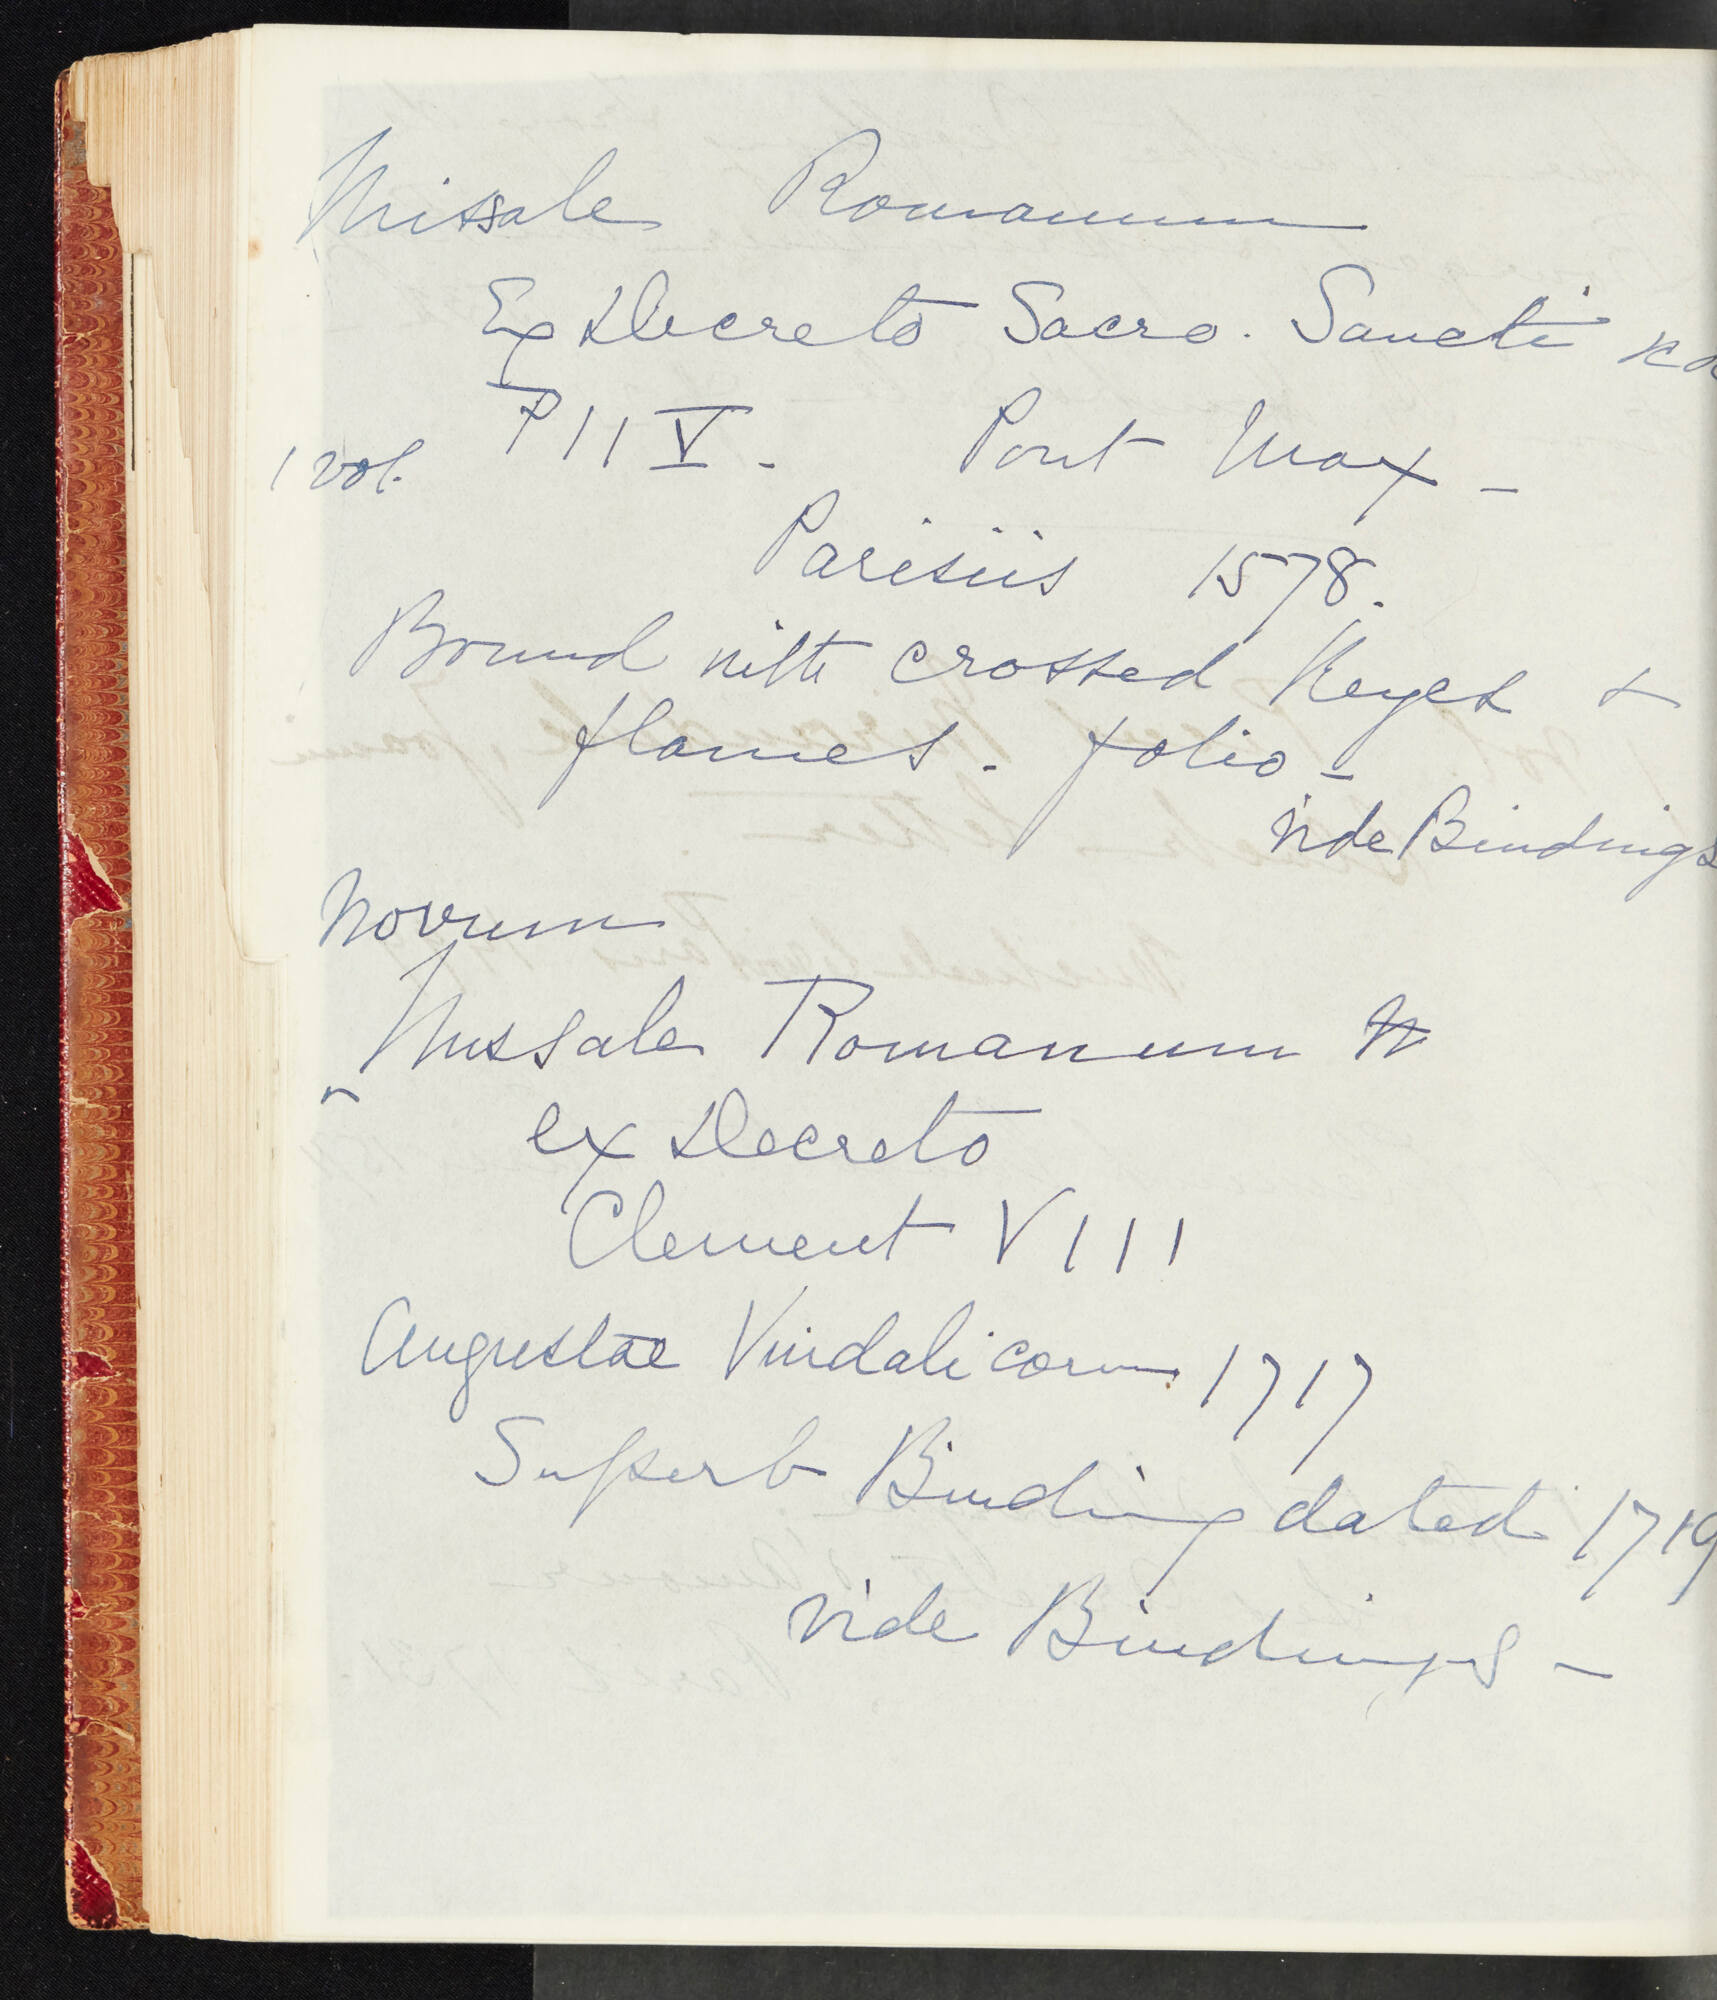 Missale Romanum
Ex Decreto Sacro. Sancti
PII V. Pont Max -
1 vol.
Parisiis 1578.
Bound with crossed Keyes +
flames. folio -
vide Bindings
Novum
Missale Romanum
ex Decreto
Clement VIII
Augustae Vindalicorum 1717
Superb Binding dated 1719
vide Bindings -